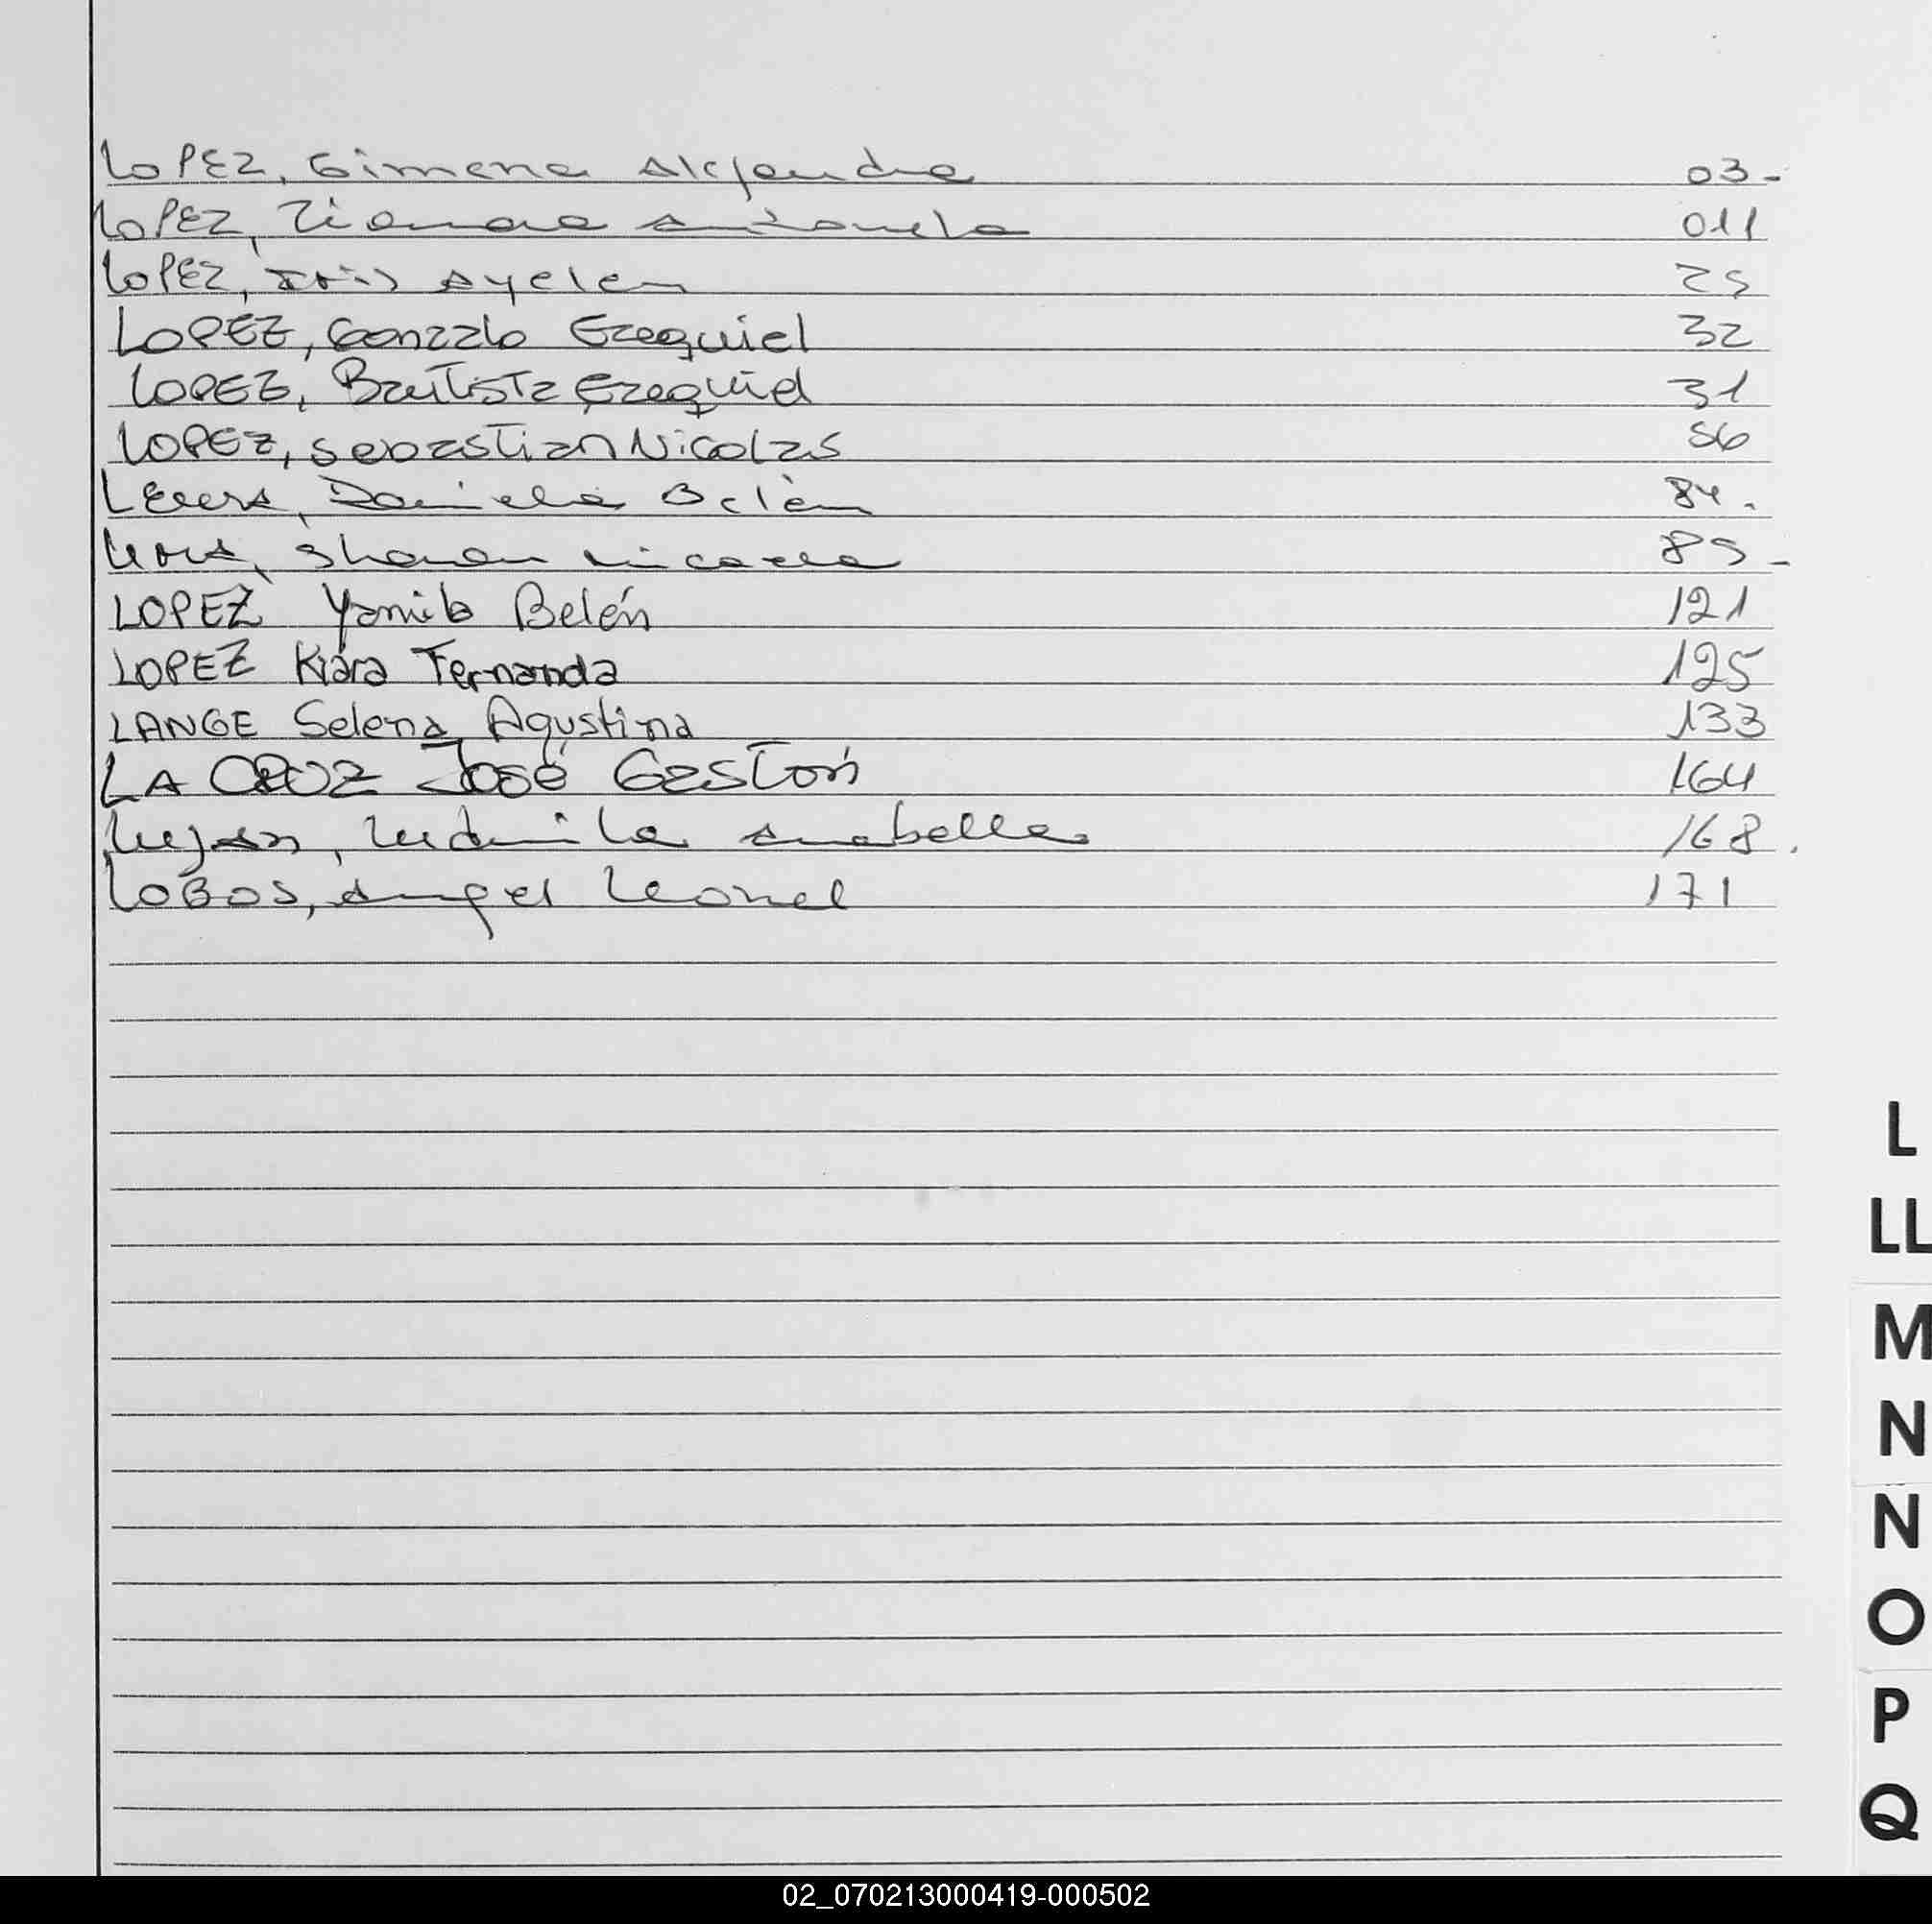 LOPEZ, Gimena Alejandra 03-
LOPEZ, Tiamara Antonela 011
LOPEZ, Iris Ayelen 25
LOPEZ, Gonzalo Ezequiel 32
LOPEZ, Bautista Ezequiel 31
LOPEZ, Sebastian Nicolas 56
Daniela Belén 84.
Sharon Micaela 85-
LOPEZ Yamila Belén 121
LOPEZ Kiara Fernanda 125
LANGE Selena Agustina 133
LA CRUZ José Gastón 164
Lujan, Ludmila Anabella 168.
LOBOS, Angel Leonel 171
L
LL
M
N
N
O
P
Q
02_070213000419-000502